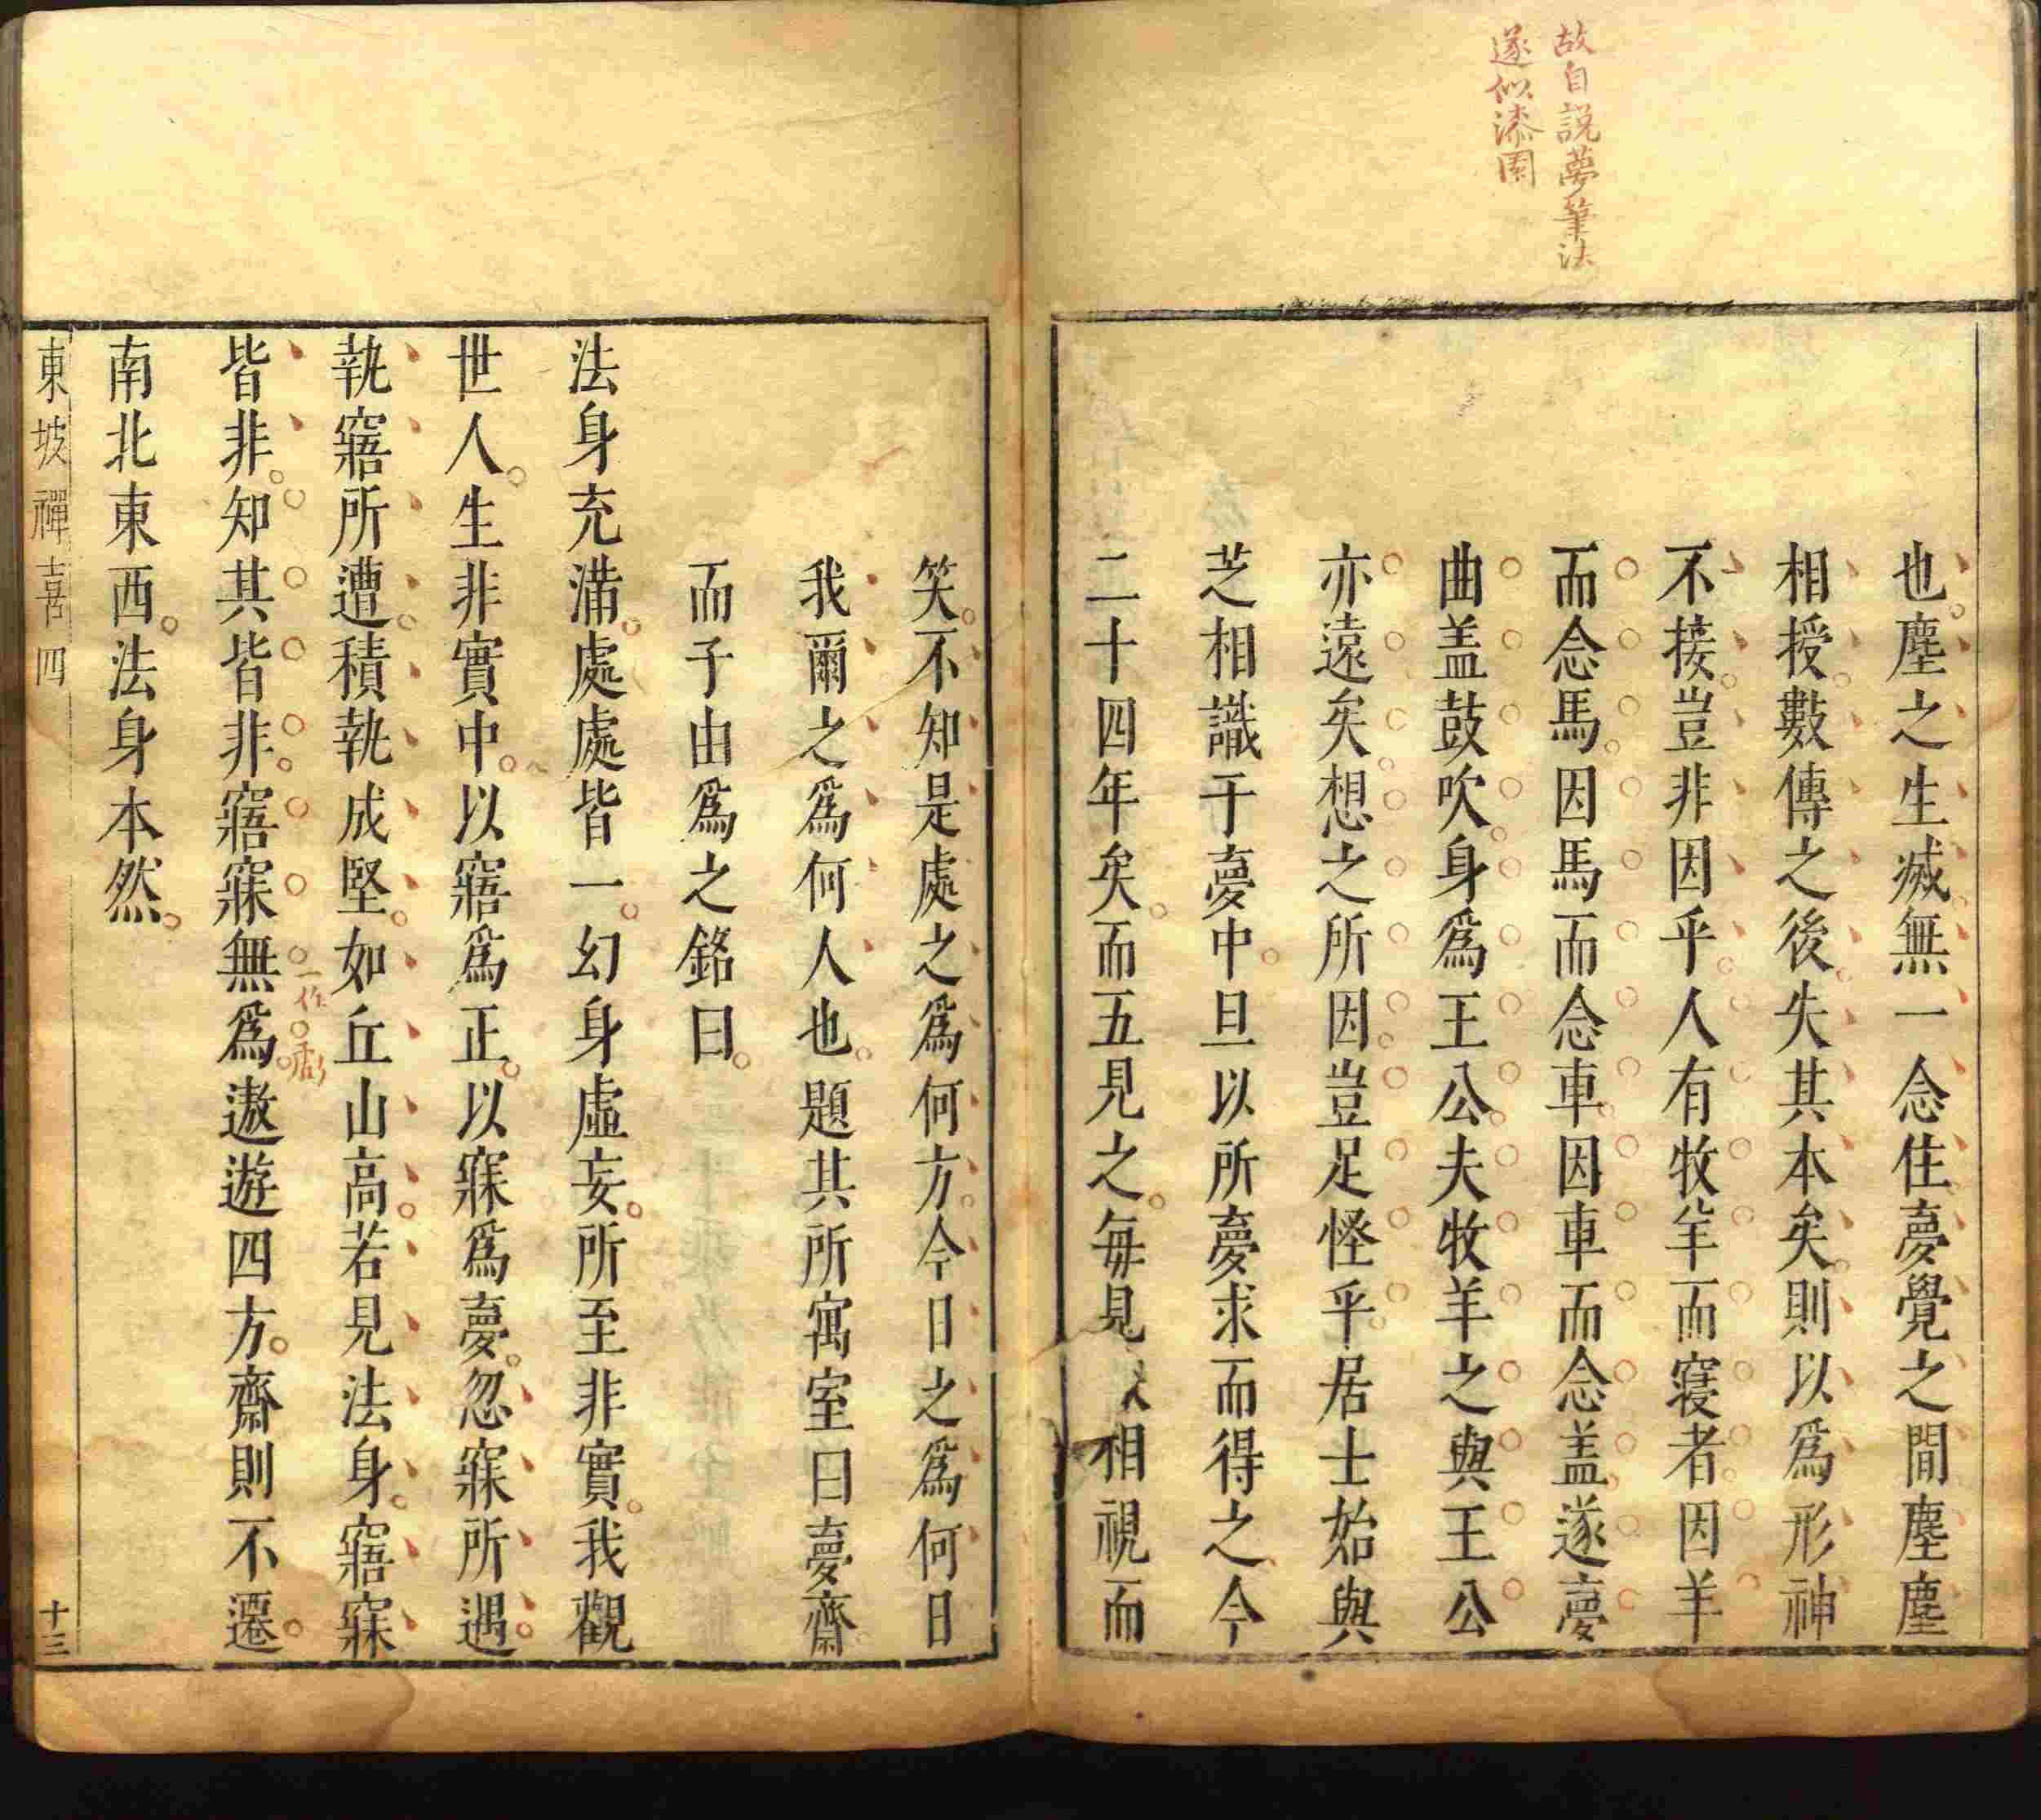 故自説夢筆法
遂似漆園
也塵之生滅無一念住夢覺之間塵塵
相授數傳之後失其本矣則以爲形神
不接豈非因乎人有牧羊而寢者因羊
而念馬因馬而念車因車而念盖遂夢
曲盖鼓吹身爲王公夫牧羊之與王公
亦遠矣想之所因豈足怪乎居士始與
芝相識于夢中旦以所夢求而得之今
二十四年矣而五見之每見相視而
笑不知是處之爲何方今日之爲何日
我爾之爲何人也題其所寓室曰夢齋
而子由爲之銘曰
法身充滿處處皆一幻身虛妄所至非實我觀
世人生非實中以寤爲正以寐爲夢忽寐所遇
執寤所遭積執成堅如丘山高若見法身寤寐
皆非知其皆非寤寐無爲遨遊四方齋則不遷
一作
南北東西法身本然
東坡禪喜四
十三